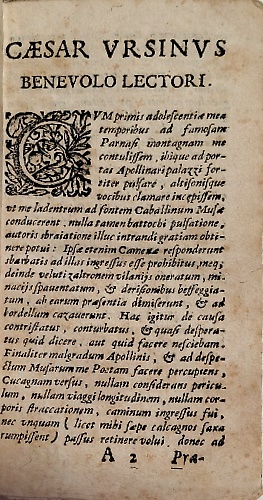 CÆSAR VRSINVS
BENEVOLO LECTORI.
CVM primis adolescentiæ meæ
temporibus ad famosam
Parnasi montagnam me
contulissem, ibique ad por-
tas Apollinari palazzi for-
riter pulsare, altisonisque
vocibus clamare incepissem,
vt me ladentrum ad fontem Caballinum Musæ
conducerent, nulla tamen battochi pulsatione,
autoris sbraiatione illuc intrandi gratiam obti-
nere potui: Ipsæ etenim Camenæ responderunt
sbarbatis ad illas ingressus esse prohibitus, meq;
deinde veluti zaltronem vilanijs oneratum, mi-
nacijs spauentatum, & derisionibus beffeggia-
tum, ab earum præsentia dimiserunt, & ad
bordellum cazauerunt. Hac igitur de causa
contristatus, conturbatus, & quasi despera-
tus quid dicere, aut quid facere nesciebam.
Finaliter malgradum Apollinis, & ad despe-
ctum Musarum me Poetam facere percupiens,
Cucagnam versus, nullam considerans pericu-
lum, nullam viaggi longitudinem, nullam cor-
poris straccationem, caminum ingressus fui,
nec vnquam (licet mihi sæpe calcagnos saxa
rumpissent) passus retinere volui, donec ad
A 2 Præ-